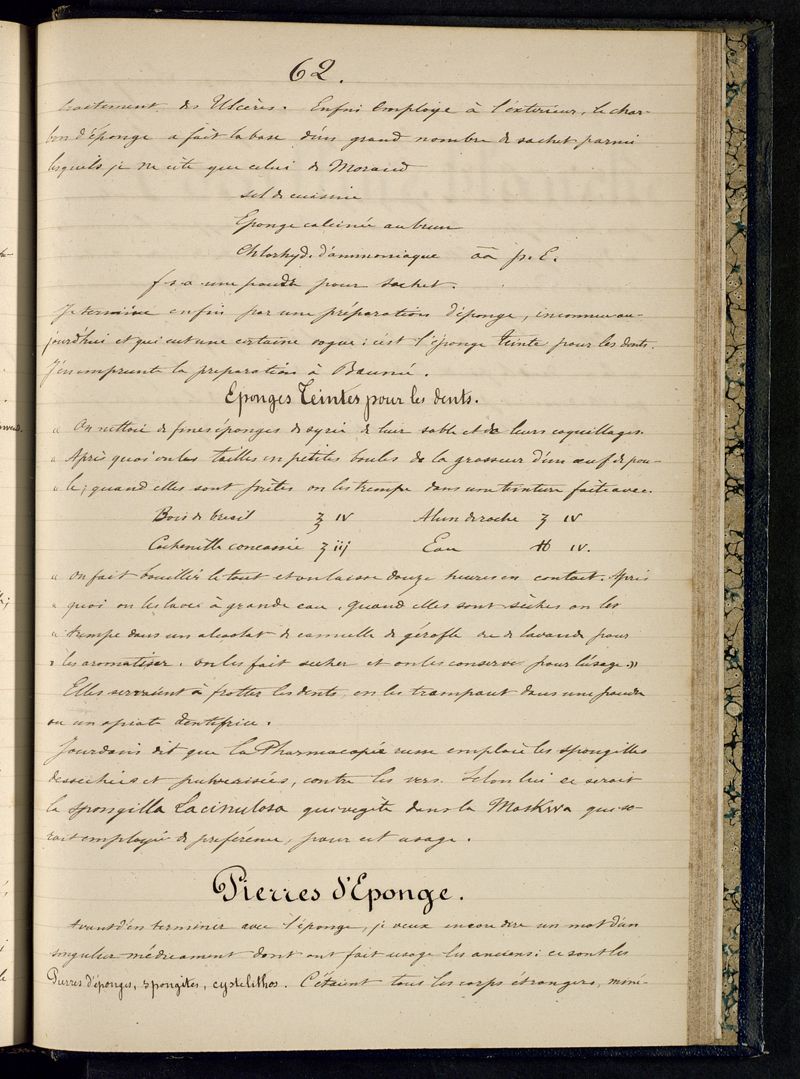 62.
traitement des Ulcères. Enfin employé à l'extérieur, le char-
bon d'éponge a fait la base d'un grand nombre de sachet parmi
lesquels je ne cite que celui de Morand
sel de cuisine
Eponge calcinée au brun
Chlorhyd. d'ammoniaque āā p. E.
f s a une poudre pour sachet.
Je termine enfin par une préparation d'éponge, inconnue au-
jourd'hui et qui eut une certaine vogue: c'est l'éponge teinte pour les dents.
J'en emprunte la préparation à Baumé.
Eponges Teintes pour les dents.
« On nettoie de fines éponges de syrie de leur sable et de leurs coquillages.
« Après quoi on les tailles en petites boules de la grosseur d'un œuf de pou-
« le; quand elles sont prêtes on les trempe dans une teinture faite avec.
Bois de bresil ʒ IV Alun de roche ʒ IV
Cochenille concassée ʒ iij Eau ℔ IV.
« on fait bouillir le tout et on laisse douze heures en contact. Après
« quoi on les lave à grande eau, quand elles sont sèches on les
« trempe dans un alcoolat de cannelle de gérofle ou de lavande pour
« les aromatiser. on les fait sécher et on les conserve pour l'usage. »
Elles servaient à frotter les dents, en les trempant dans une poudre
ou un opiat dentifrice.
Jourdain dit que la Pharmacopée russe emploie les spongilles
desséchées et pulvérisées, contre les vers. Selon lui ce serait
la spongilla Lacinulosa qui végète dans la Moskwa qui se-
rait employée de préférence, pour cet usage.
Pierres d'Eponge.
Avant d'en terminer avec l'éponge, je veux encore dire un mot d'un
singulier médicament dont ont fait usage les anciens: ce sont les
Pierres d'éponges, spongites, cystelithos. C'étaient tous les corps étrangers, miné-